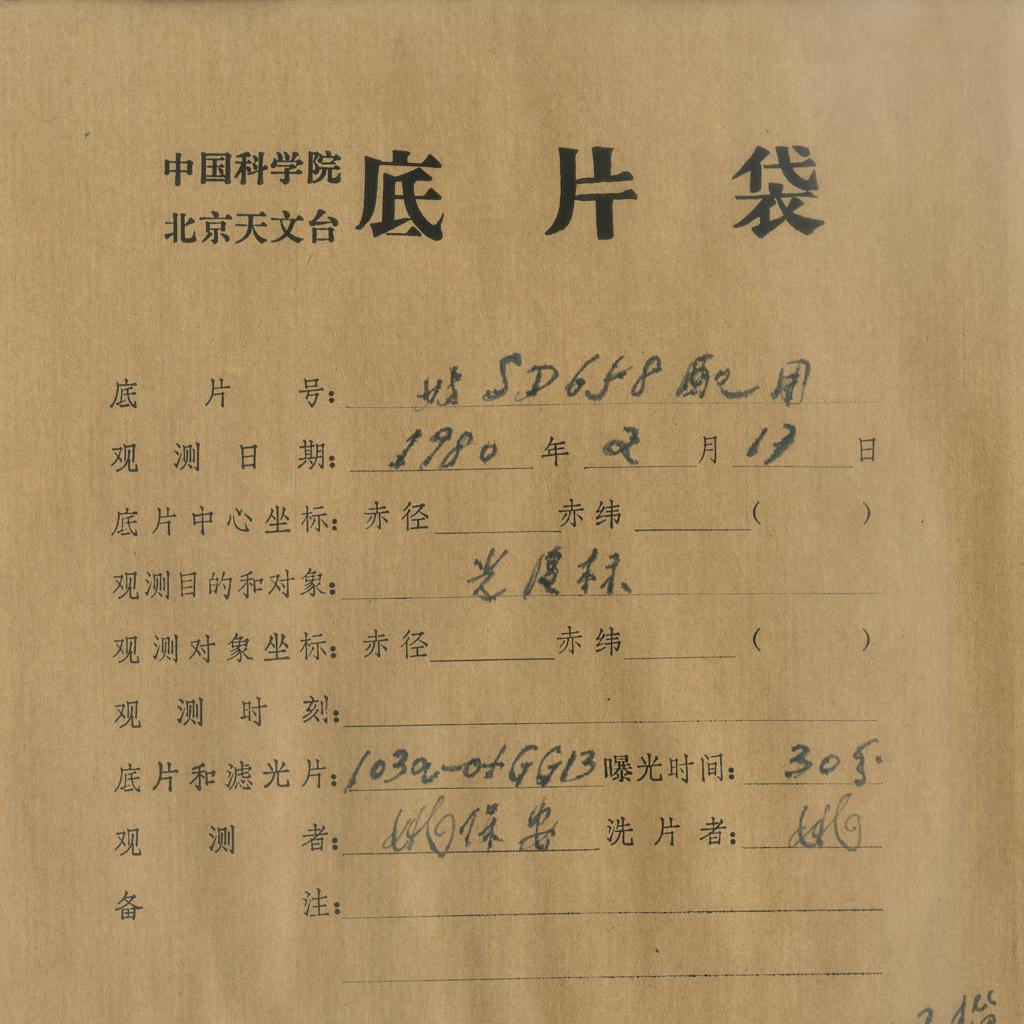 中国科学院
北京天文台
底片袋
底片号: SD658配用
观测日期: 1980年2月17日
底片中心坐标: 赤径 赤纬 ( )
观测目的和对象: 光度标
观测对象坐标: 赤径 赤纬 ( )
观测时刻:
底片和滤光片: 103a-O+GG13 曝光时间: 30
观测者: 姚保安 洗片者: 姚
备注: